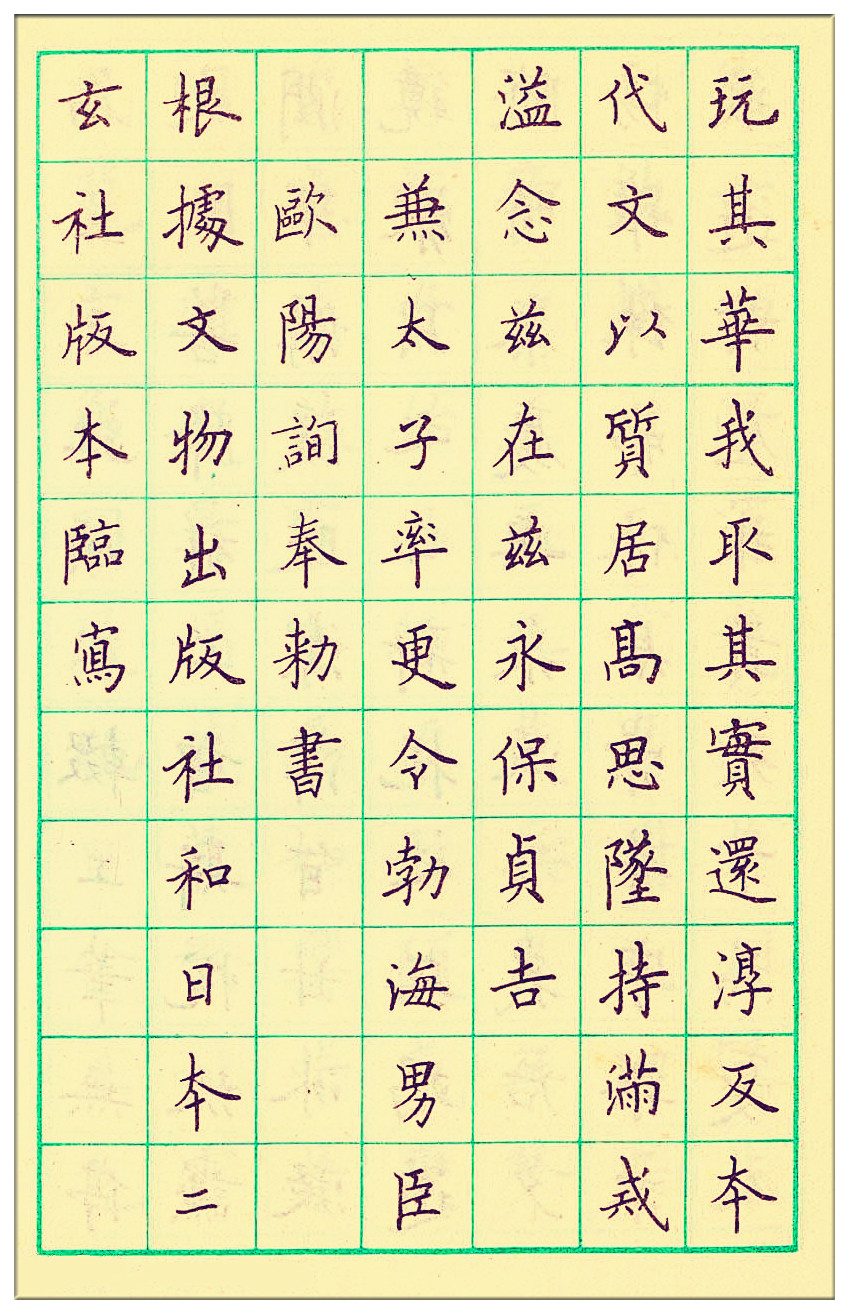 玩其華我取其實還淳反本
代文以質居高思墜持滿戒
溢念兹在兹永保貞吉
兼太子率更令勃海男臣
歐陽詢奉勑書
根據文物出版社和日本二
玄社版本臨寫